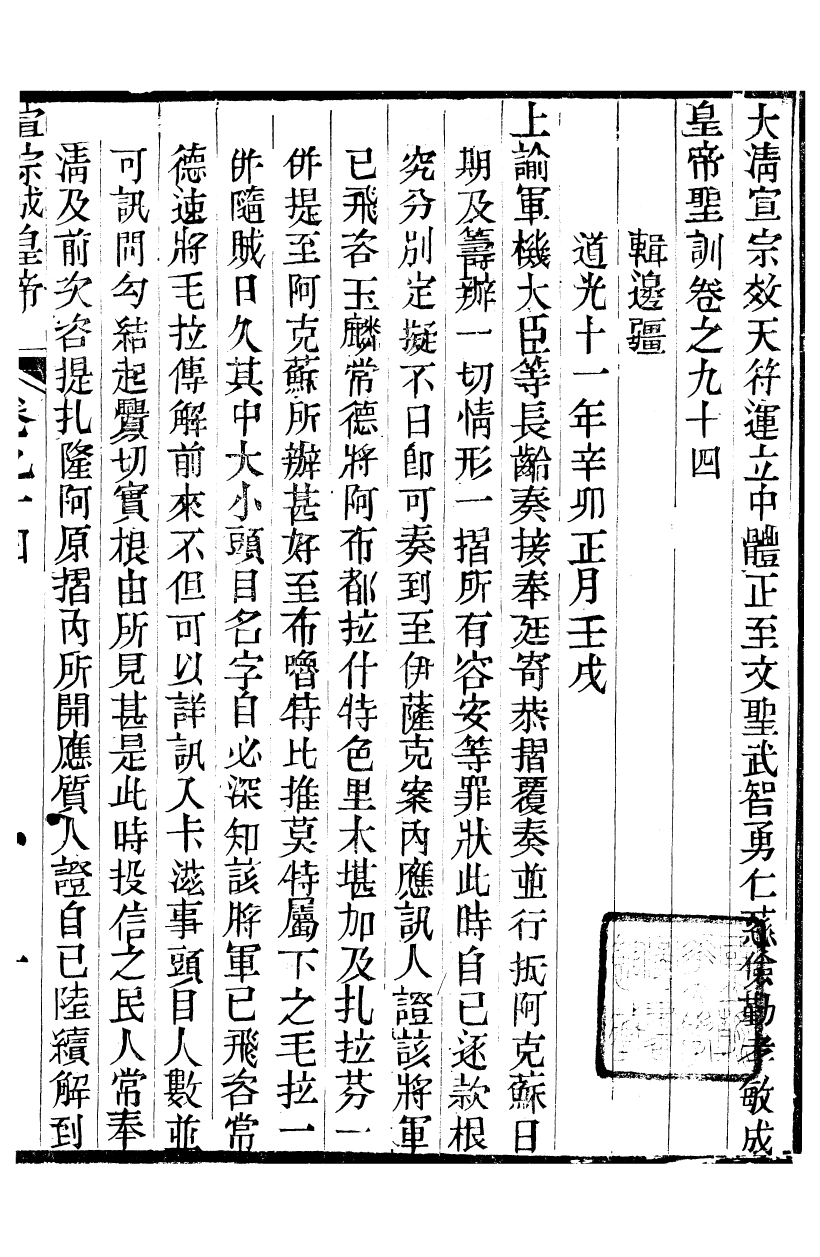 大清宣宗效天符運立中體正至文聖武智勇仁慈儉勤孝敏成
皇帝聖訓卷之九十四
輯邊疆
道光十一年辛卯正月壬戌
上諭軍機大臣等長齡奏接奉廷寄恭摺覆奏並行抵阿克蘇日
期及籌辦一切情形一摺所有容安等罪狀此時自已逐款根
究分別定擬不日卽可奏到至伊薩克案內應訊人證該將軍
已飛咨玉麟常德將阿布都拉什特色里木堪加及扎拉芬一
併提至阿克蘇所辦甚好至布嚕特比推莫特屬下之毛拉一
併隨賊日久其中大小頭目名字自必深知該將軍已飛咨常
德速將毛拉傳解前來不但可以詳訊入卡滋事頭目人數並
可訊問勾結起釁切實根由所見甚是此時投信之民人常奉
淸及前次咨提扎隆阿原摺內所開應質人證自已陸續解到
宣宗成皇帝 卷九十四 一